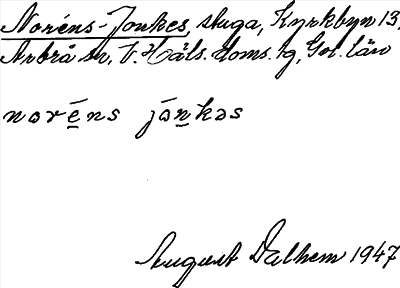 Noréns-Jonkes, stuga, Kyrkbyn 13,
Arbrå sn, V. Häls. doms. tg, Gvl. län
noréns jónkəs
August Dalhem 1947